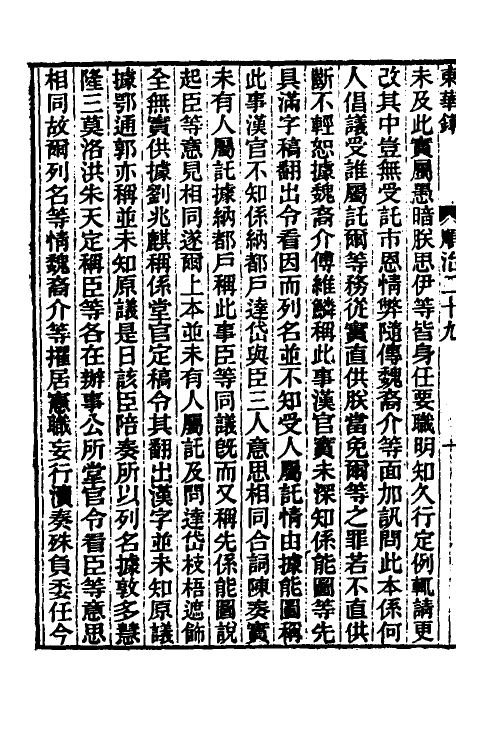 東華錄 順治二十九 十
未及此實屬愚暗朕思伊等皆身任要職明知久行定例輒請更
改其中豈無受託市恩情弊隨傳魏裔介等面加訊問此本係何
人倡議受誰屬託爾等務從實直供朕當免爾等之罪若不直供
斷不輕恕據魏裔介傅維鱗稱此事漢官實未深知係能圖等先
具滿字稿翻出令看因而列名並不知受人屬託情由據能圖稱
此事漢官不知係納都戶達岱與臣三人意思相同合詞陳奏實
未有人屬託據納都戶稱此事臣等同議旣而又稱先係能圖說
起臣等意見相同遂爾上本並未有人屬託及問達岱枝梧遮飾
全無實供據劉兆麒稱係堂官定稿令其翻出漢字並未知原議
據鄂通郭亦稱並未知原議是日該臣陪奏所以列名據敦多慧
隆三莫洛洪朱天定稱臣等各在辦事公所堂官令看臣等意思
相同故爾列名等情魏裔介等擢居憲職妄行瀆奏殊負委任今